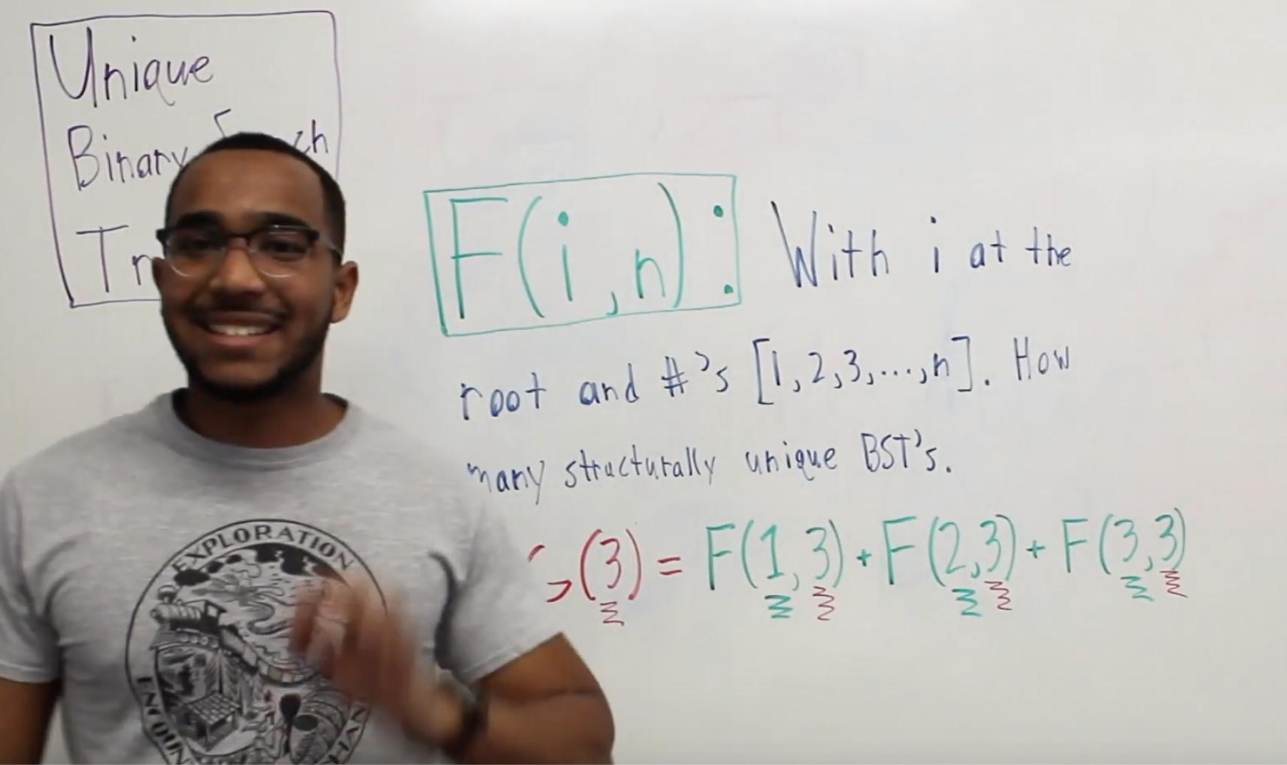 Unique
Binary
F(i,n): With i at the
root and #'s [1,2,3,...,n]. How
many structurally unique BST's.
(3) = F(1,3) + F(2,3) + F(3,3)
EXPLORATION